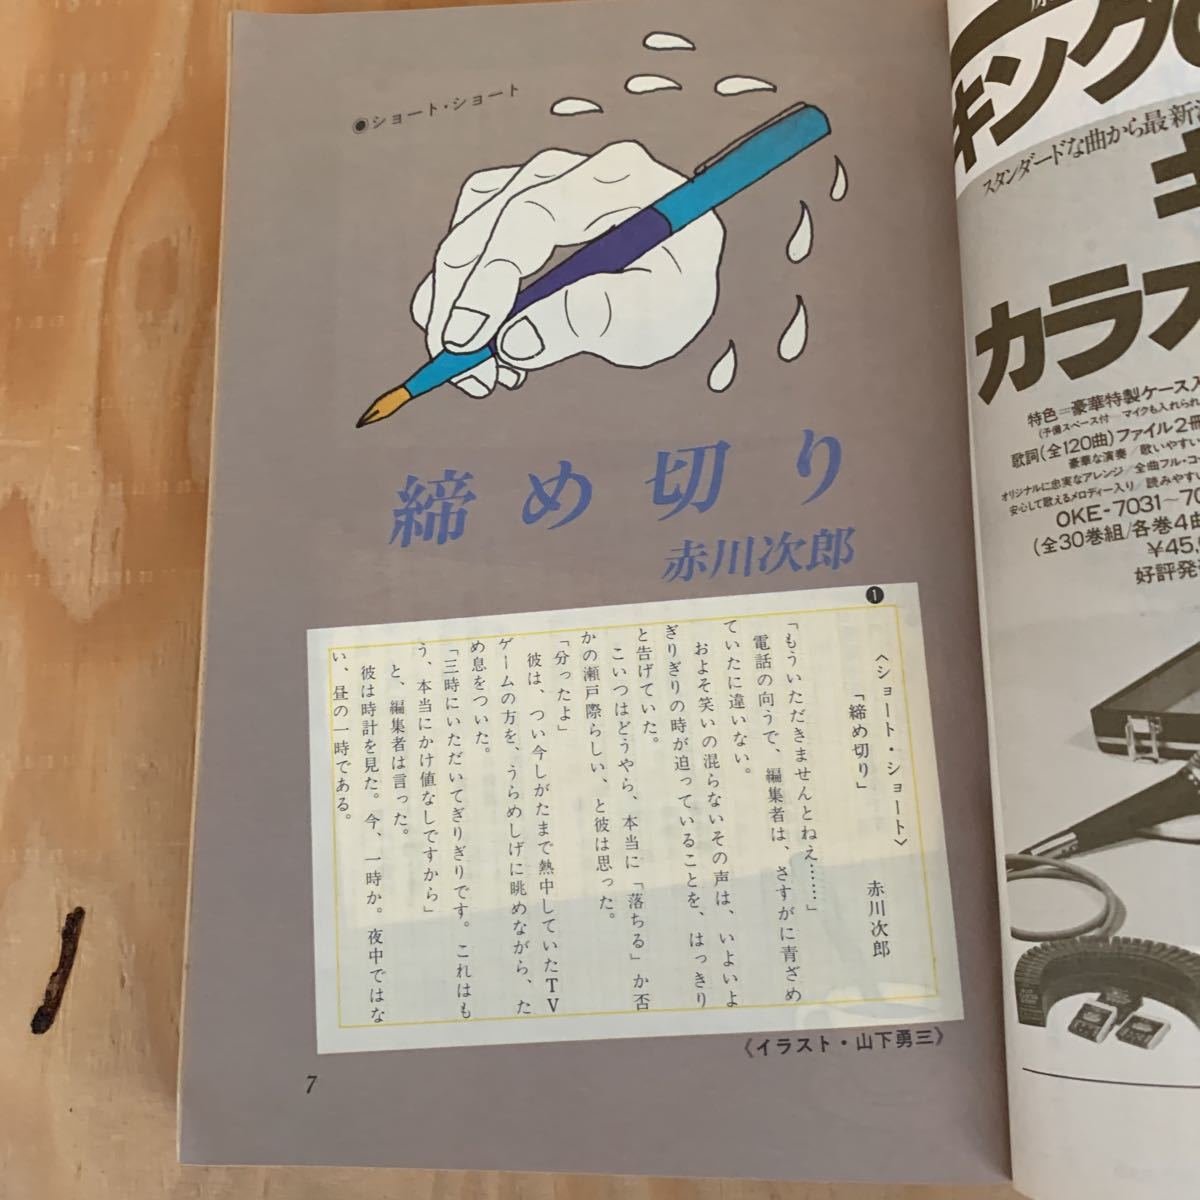 ●ショート・ショート
締め切り
赤川次郎
❶
〈ショート・ショート〉
「締め切り」　　　赤川次郎
「もういただきませんとねえ……」
電話の向うで、編集者は、さすがに青ざめ
ていたに違いない。
およそ笑いの混らないその声は、いよいよ
ぎりぎりの時が迫っていることを、はっきり
と告げていた。
こいつはどうやら、本当に「落ちる」か否
かの瀬戸際らしい、と彼は思った。
「分ったよ」
彼は、つい今しがたまで熱中していたTV
ゲームの方を、うらめしげに眺めながら、た
め息をついた。
「三時にいただいてぎりぎりです。これはも
う、本当にかけ値なしですから」
と、編集者は言った。
彼は時計を見た。今、一時か。夜中ではな
い、昼の一時である。
《イラスト・山下勇三》
7
キング
スタンダードな曲から最新
カラオ
特色＝豪華特製ケース入
(予備スペース付　マイクも入れられ
歌詞(全120曲)ファイル2冊
豪華な演奏／歌いやすい
オリジナルに忠実なアレンジ／全曲フル・コー
安心して歌えるメロディー入り／読みやすい
OKE-7031〜70
(全30巻組/各巻4曲
¥45,
好評発